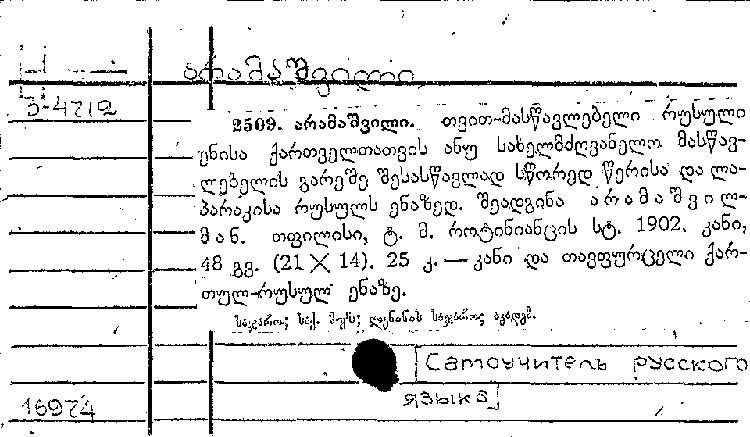 არამაშვილი
5-4212
2509. არამაშვილი. თვით-მასწავლებელი რუსული
ენისა ქართველთათვის ანუ სახელმძღვანელო მასწავ-
ლებელის გარეშე შესასწავლად სწორედ წერისა და ლა-
პარაკისა რუსულს ენაზედ. შეადგინა არამაშვილ-
მან. თფილისი, ტ. მ. როტინიანცის სტ. 1902. კანი,
48 გვ. (21 × 14). 25 კ. — კანი და თავფურცელი ქარ-
თულ-რუსულ ენაზე.
საჯარო; საქ. მუზ; ლენინის საჯარო; აკადემ.
[Самоучитель русского
языка]
16974